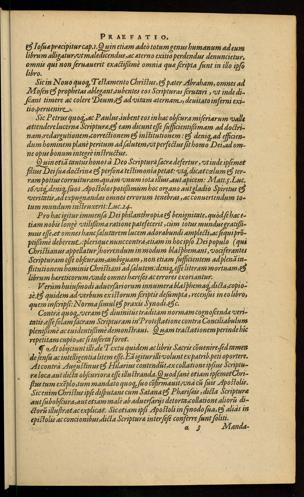 PRAEFATIO.
& Iosua præcipitur cap. 1. Quin etiam adeò totum genus humanum ad eum
librum alligatur, ut maledicendus, ac æterno exitio perdendus denuncietur,
omnis qui non servauerit exactissimè omnia quæ scripta sunt in illo ipso
libro.
Sic in Nouo quoque Testamento Christus, & pater Abraham, omnes ad
Mosen & prophetas ablegant, iubentes eos Scripturas scrutari, ut inde di-
scant timere ac colere Deum, & ad vitam æternam, deuitato inferni exi-
tio, peruenire.
Sic Petrus quoque, ac Paulus, iubent eos in hac obscura miseriarum valle
attendere lucernæ Scripturæ, & eam dicunt esse sufficientissimam ad doctri-
nam, redargutionem, correctionem & institutionem: & deniq; ad efficien-
dum hominem planè peritum ad salutem, ut perfectus sit homo Dei, ad om-
ne opus bonum integrè instructus.
Quin etiã tantus honos à Deo Scripturæ sacræ defertur, ut inde ipsemet
filius Dei suæ doctrinæ & personæ testimonia petat:
rram potius corruituram, quàm unum iota illius, aut apicem: Matt. 5. Luc.
16. deniq; suos Apostolos potissimum hoc organo aut gladio Spiritus &
veritatis, ad expugnandas omnes errorum tenebras, ac conuertendum to-
tum mundum instruxerit: Luc. 24.
Pro hac igitur immensa Dei philanthropia & benignitate, quòd sic hac e-
tiam nobis longè vtilissima ratione patefecerit, cum totus mundus gratissi-
mus esse, at omnes hanc salutarem lucem adorabundi amplecti, ac sequi pro-
ptissimè deberent. plerique nunc contra, etiam in hoc ipso Dei populo (qui
Christianus appellatur) horrendum in modum blasphemant, vociferantes
Scripturam esse obscuram, ambiguam, non etiam sufficientem ad plenã in-
stitutionem hominis Christiani ad salutem: deniq; esse literam mortuam, &
librum hæreticorum, unde omnes hæreses ac errores exoriantur.
Verùm huiusmodi aduersariorum innumera blasphemaq; dicta, copio-
sè, & quidem ad verbum ex ipsorum scriptis desumpta, recensui in eo libro,
quem inscripsi: Norma simul & praxis Synodi &c.
Contrà quoque, veram & diuinitùs traditam normam cognoscendæ veri-
tatis esse solam sacram Scripturam in Protestatione contra Conciliabulum
plenissimè ac euidentissimè demonstraui. Quam tractationem perinde hic
repetitam copio, ac si inserta foret.
¶ At obijciunt illi: de Textu quidem ac libris Sacris conuenire, sed tamen
de sensu ac intelligentia litem esse. Eã igitur illi volunt ex patrib. peti oportere.
At contrà Augustinus & Hilarius contendũt, ex collatione ipsius Scriptu-
ræ loca aut dicta obscuriora esse illustranda. Quod sanè etiam ipsemet Chri-
stus tum exẽplo, tum mandato quoq, suo cõfirmauit, unà cũ suis Apostolis.
Sic enim Christus ipse disputans cum Satana & Pharisæis, dicta Scripturæ
aut subobscura, aut etiam malè ab aduersarijs detorta, collatione aliorũ di-
ctorũ illustrat, ac explicat. Sic etiam ipsi Apostoli in synodo sua, & alias in
epistolis ac concionibus, dicta Scripturæ interse se conferre sunt soliti.
a 3 Manda-